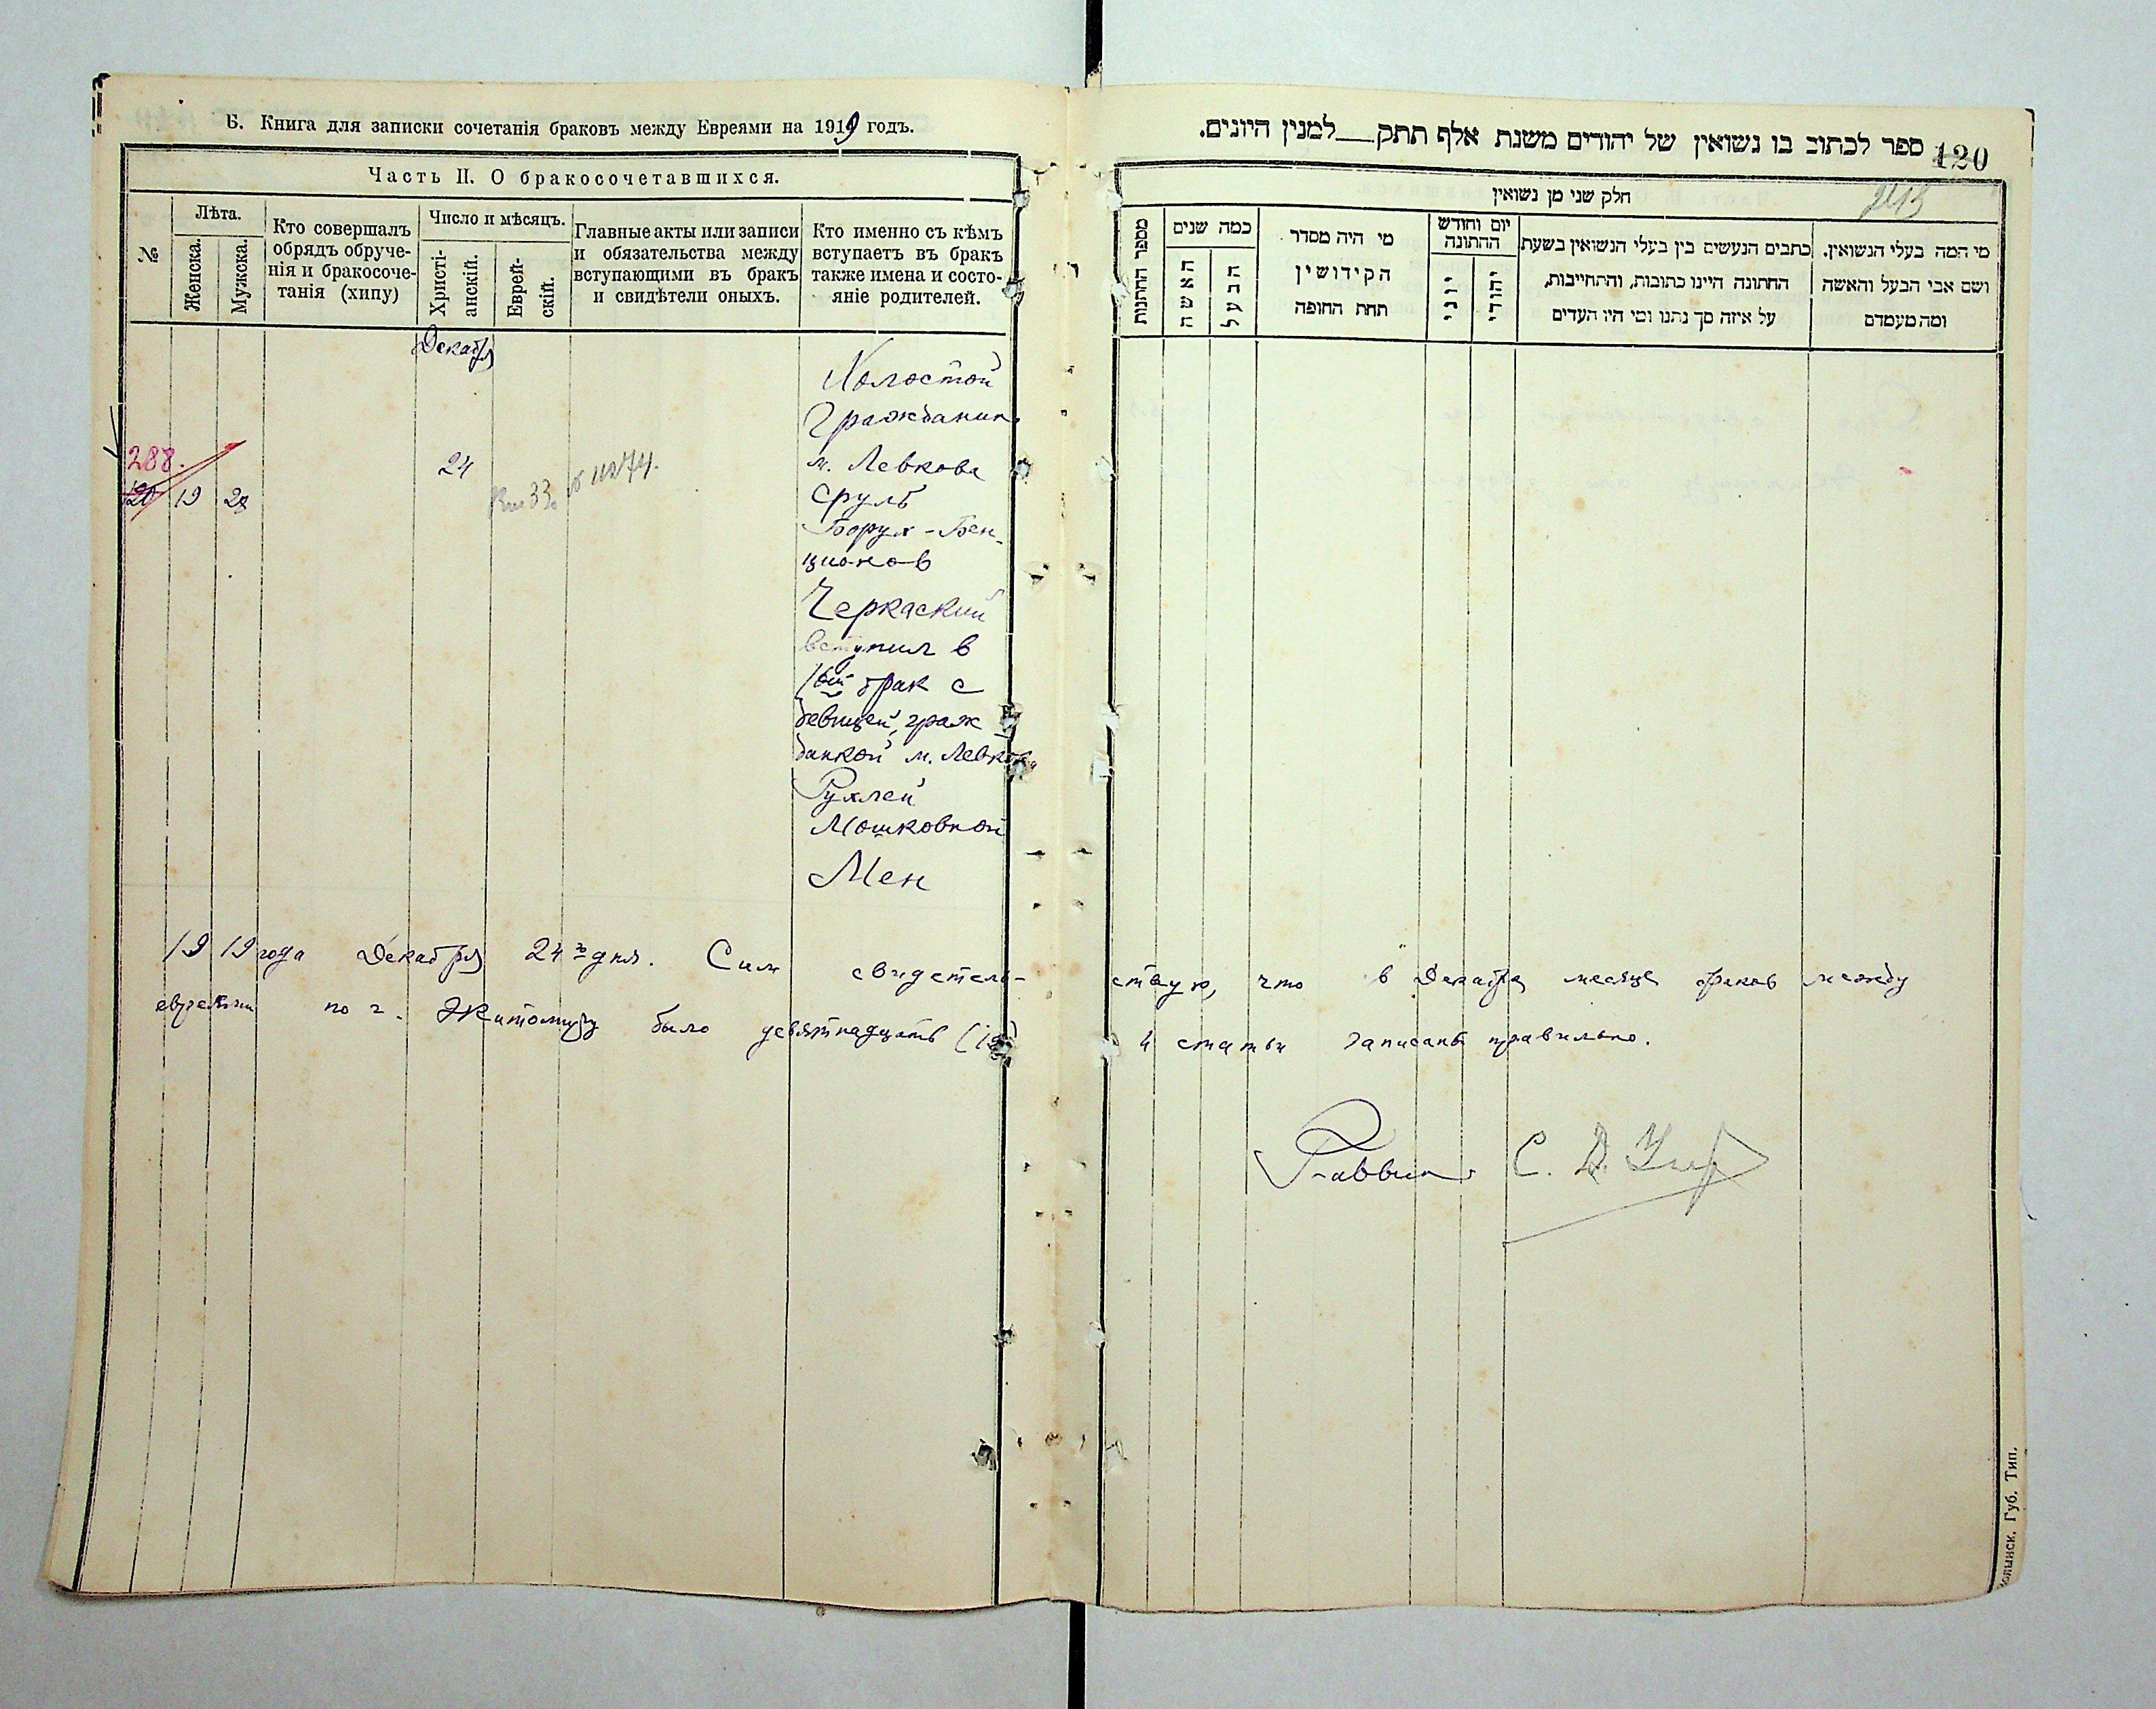 Б. Книга для записки сочетанія браковъ между Евреями на 1919 годъ.
Часть II. О бракосочетавшихся.
№
Лѣта.
Женска.
Мужска.
Кто совершалъ
обрядъ обруче-
нія и бракосоче-
танія (хипу)
Число и мѣсяцъ.
Христі-
анскій.
Еврей-
скій.
Главные акты или записи
и обязательства между
вступающими въ бракъ
и свидѣтели оныхъ.
Кто именно съ кѣмъ
вступаетъ въ бракъ
также имена и состо-
яніе родителей.
Декабря
288.
120 19 28
24
Холостой
Гражданин
м. Левкова
Сруль
Борух-Бен-
ционов
Черкаский
вступил в
1ый брак с
девицей, граж
данкой м. Левкова
Рухлей
Мошковной
Мен
1919 года Декабря 24 дня. Сим свидетель-
евреями по г. Житомиру было девятнадцать (19)
ספר לכתוב בו נשואין של יהודים משנת אלף תתק__למנין היונים.
120
חלק שני מן נשואין
מספר החתונות
כמה שנים
האשה
הבעל
מי היה מסדר
הקידושין
תחת החופה
יום וחודש
החתונה
יוני
יהודי
כתבים הנעשים בין בעלי הנשואין בשעת
החתונה היינו כתובות, והתחייבות,
על איזה סך נתנו ומי היו העדים
מי המה בעלי הנשואין.
ושם אבי הבעל והאשה
ומה מעמדם
ствую, что в Декабре месяце браков между
и статьи записаны правильно.
Раввин С. Д.
Волынск. Губ. Тип.